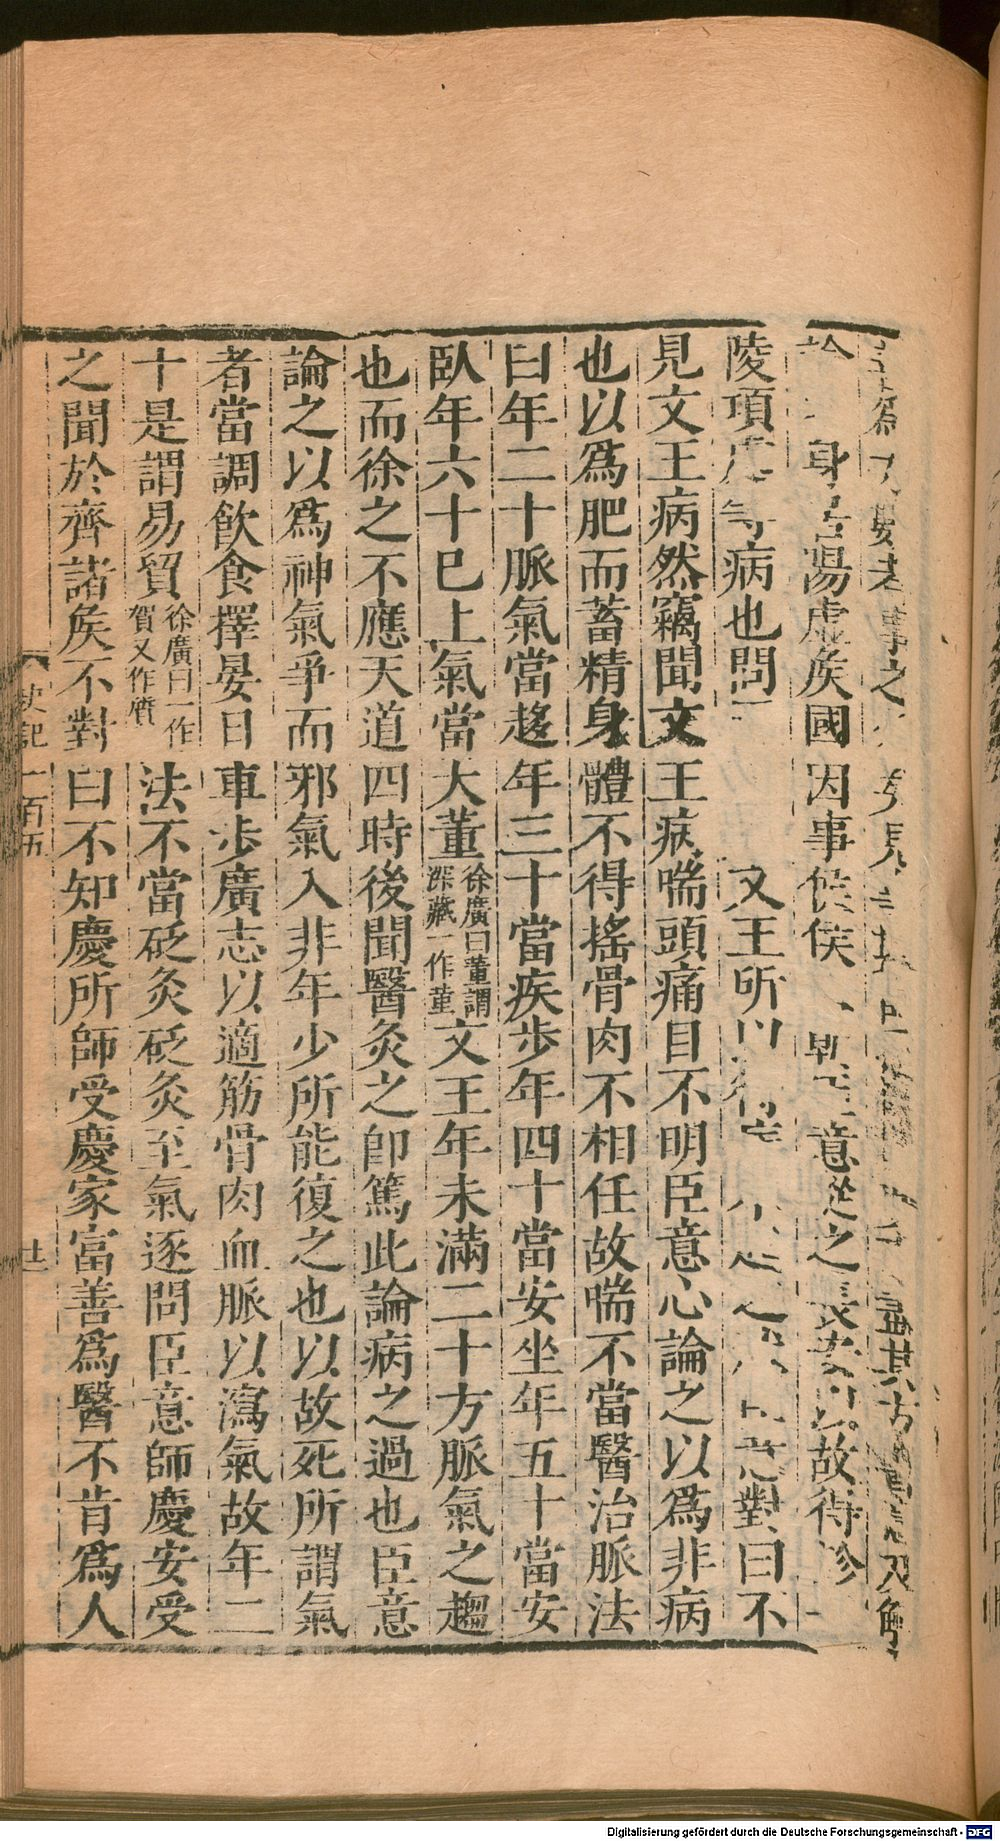 事之
身居陽虛矦國因事侯
意從之長安以故得診
陵項處等病也問
文王所以
對曰不
見文王病然竊聞文王病喘頭痛目不明臣意心論之以爲非病
也以爲肥而蓄精身體不得搖骨肉不相任故喘不當醫治脈法
曰年二十脈氣當趍年三十當疾步年四十當安坐年五十當安
臥年六十巳上氣當大董
徐廣曰董謂
深藏一作堇
文王年未滿二十方脈氣之趨
也而徐之不應天道四時後聞醫灸之卽篤此論病之過也臣意
論之以爲神氣爭而邪氣入非年少所能復之也以故死所謂氣
者當調飮食擇晏日車步廣志以適筋骨肉血脈以瀉氣故年二
十是謂易貿
徐廣曰一作
賀又作質
法不當砭灸砭灸至氣逐問臣意師慶安受
之聞於齊諸矦不對曰不知慶所師受慶家富善爲醫不肯爲人
史記一百五
廿一
Digitalisierung gefördert durch die Deutsche Forschungsgemeinschaft - DFG